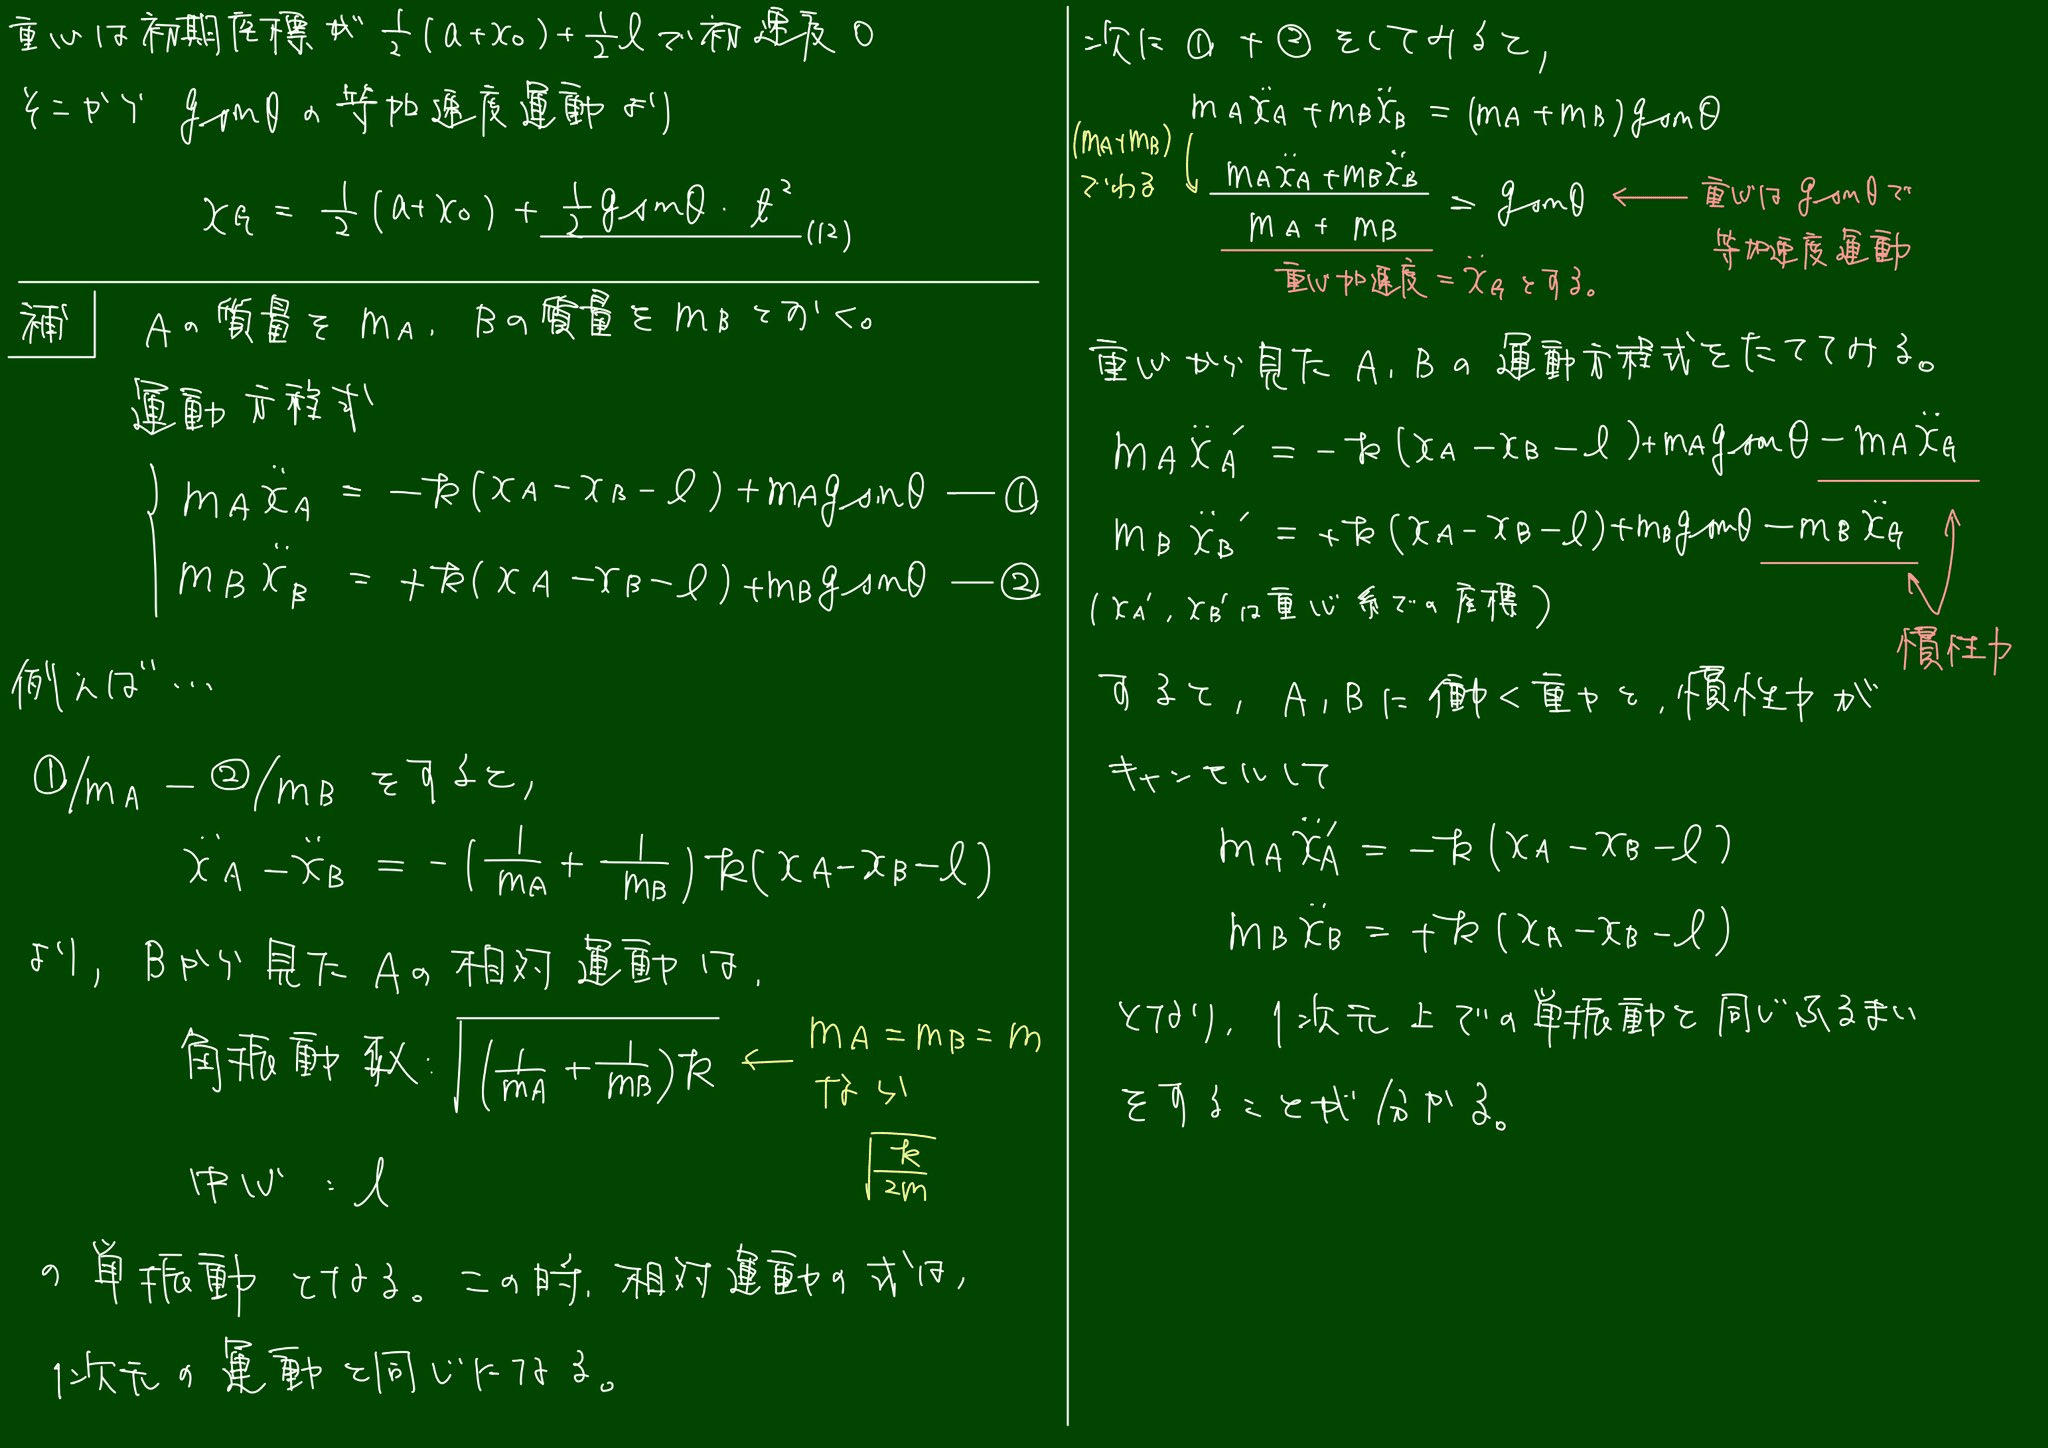 重心は初期座標が 1/2(a+x₀)+1/2 l で初速度0
そこから gsinθの等加速度運動より
x_G = 1/2(a+x₀) + 1/2 gsinθ・t² (12)
補 Aの質量を m_A, Bの質量を m_B とおく。
運動方程式
m_A ẍ_A = −k(x_A−x_B−l)+m_A gsinθ — ①
m_B ẍ_B = +k(x_A−x_B−l)+m_B gsinθ — ②
例えば…
①/m_A − ②/m_B をすると,
ẍ_A−ẍ_B = −(1/m_A + 1/m_B)k(x_A−x_B−l)
より, Bから見たAの相対運動は,
角振動数: √((1/m_A + 1/m_B)k) ← m_A = m_B = m
なら
√(k/2m)
中心 : l
の単振動となる。この時, 相対運動の式は,
1次元の運動と同じになる。
次に ① + ② をしてみると,
m_A ẍ_A + m_B ẍ_B = (m_A + m_B)gsinθ
(m_A+m_B)
でわる
(m_A ẍ_A + m_B ẍ_B)/(m_A + m_B) = gsinθ ← 重心は gsinθで
等加速度運動
重心加速度 = ẍ_G とする。
重心から見た A, Bの運動方程式をたててみる。
m_A ẍ_A′ = −k(x_A−x_B−l)+m_A gsinθ−m_A ẍ_G
m_B ẍ_B′ = +k(x_A−x_B−l)+m_B gsinθ−m_B ẍ_G
(x_A′, x_B′は重心系での座標)
慣性力
すると, A, Bに働く重力と, 慣性力が
キャンセルして
m_A ẍ_A′ = −k(x_A−x_B−l)
m_B ẍ_B = +k(x_A−x_B−l)
となり, 1次元上での単振動と同じふるまい
をすることが分かる。